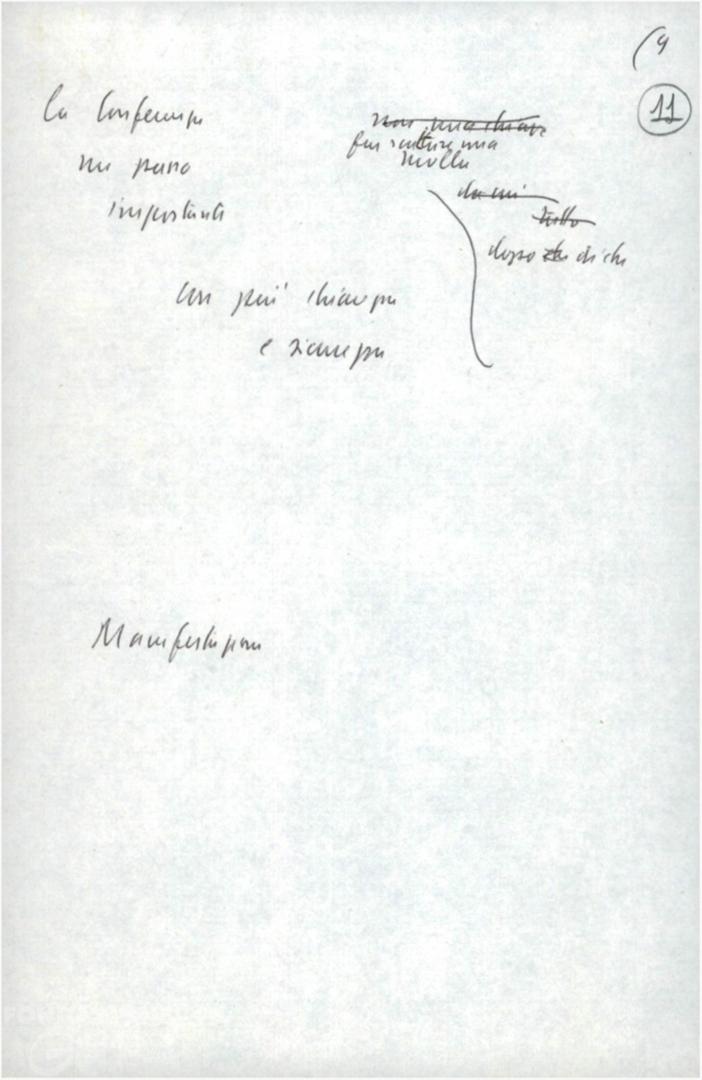 (9
11
la Conferenza
mi pare
importante
non una chiave
far scattare una
molla
da cui
tutto
dopo di che
con più chiarezza
e
Manifestazione